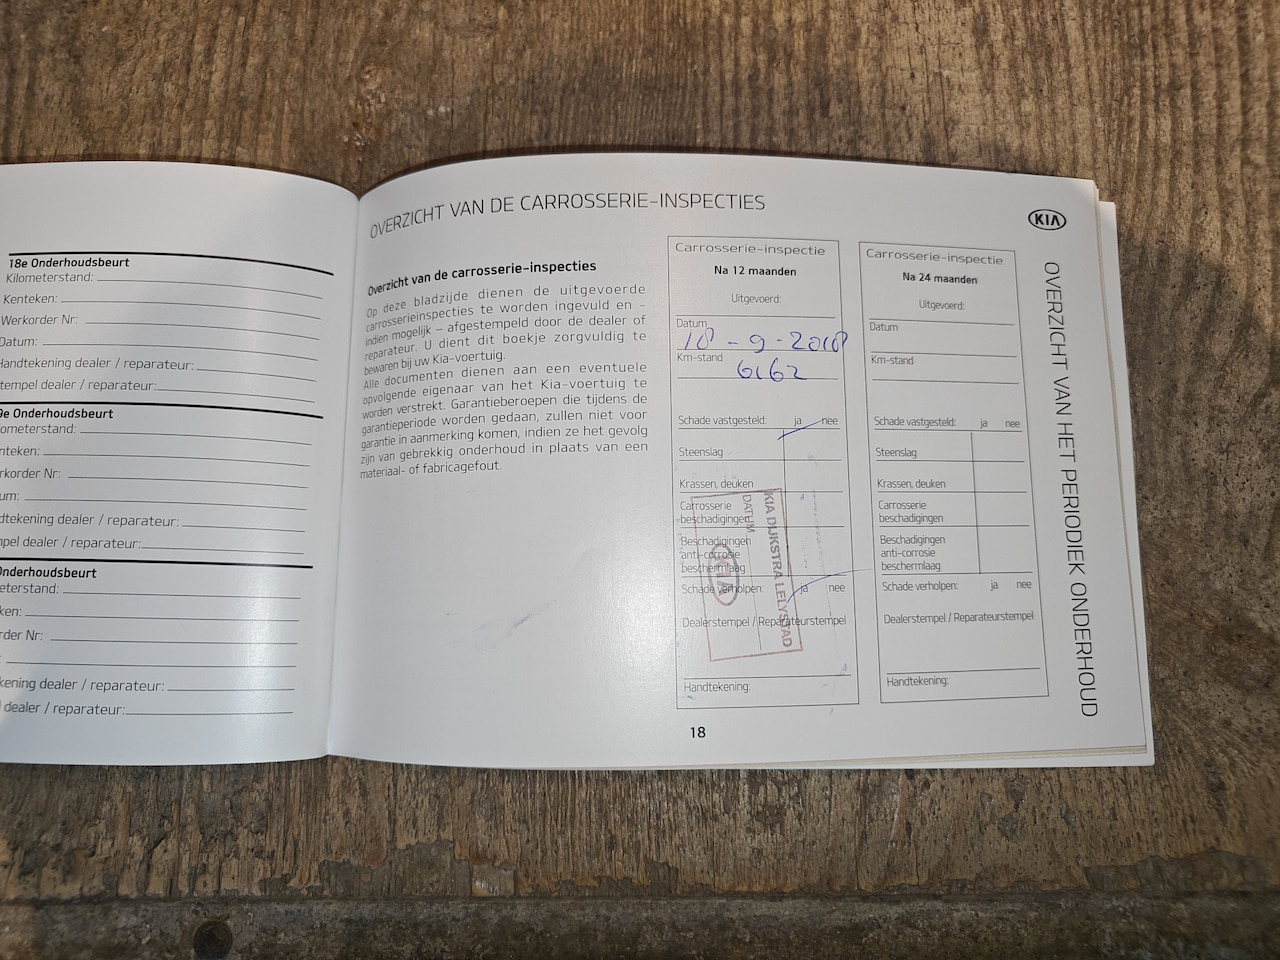 18e Onderhoudsbeurt
Kilometerstand:
Kenteken:
Werkorder Nr:
Datum:
Handtekening dealer / reparateur:
tempel dealer / reparateur:
9e Onderhoudsbeurt
lometerstand:
nteken:
rkorder Nr:
um:
dtekening dealer / reparateur:
npel dealer / reparateur:
Onderhoudsbeurt
eterstand:
ken:
rder Nr:
kening dealer / reparateur:
dealer / reparateur:
OVERZICHT VAN DE CARROSSERIE-INSPECTIES
Overzicht van de carrosserie-inspecties
Op deze bladzijde dienen de uitgevoerde
carrosserieinspecties te worden ingevuld en -
indien mogelijk – afgestempeld door de dealer of
reparateur. U dient dit boekje zorgvuldig te
bewaren bij uw Kia-voertuig.
Alle documenten dienen aan een eventuele
opvolgende eigenaar van het Kia-voertuig te
worden verstrekt. Garantieberoepen die tijdens de
garantieperiode worden gedaan, zullen niet voor
garantie in aanmerking komen, indien ze het gevolg
zijn van gebrekkig onderhoud in plaats van een
materiaal- of fabricagefout.
Carrosserie-inspectie
Na 12 maanden
Uitgevoerd:
Datum
18-9-2018
Km-stand
6162
Schade vastgesteld: ja nee
Steenslag
Krassen, deuken
Carrosserie
beschadigingen
Beschadigingen
anti-corrosie
beschermlaag
Schade verholpen: ja nee
Dealerstempel / Reparateurstempel
Handtekening:
KIA DIJKSTRA LELYSTAD
DATUM
KIA
Carrosserie-inspectie
Na 24 maanden
Uitgevoerd:
Datum
Km-stand
Schade vastgesteld: ja nee
Steenslag
Krassen, deuken
Carrosserie
beschadigingen
Beschadigingen
anti-corrosie
beschermlaag
Schade verholpen: ja nee
Dealerstempel / Reparateurstempel
Handtekening:
KIA
OVERZICHT VAN HET PERIODIEK ONDERHOUD
18